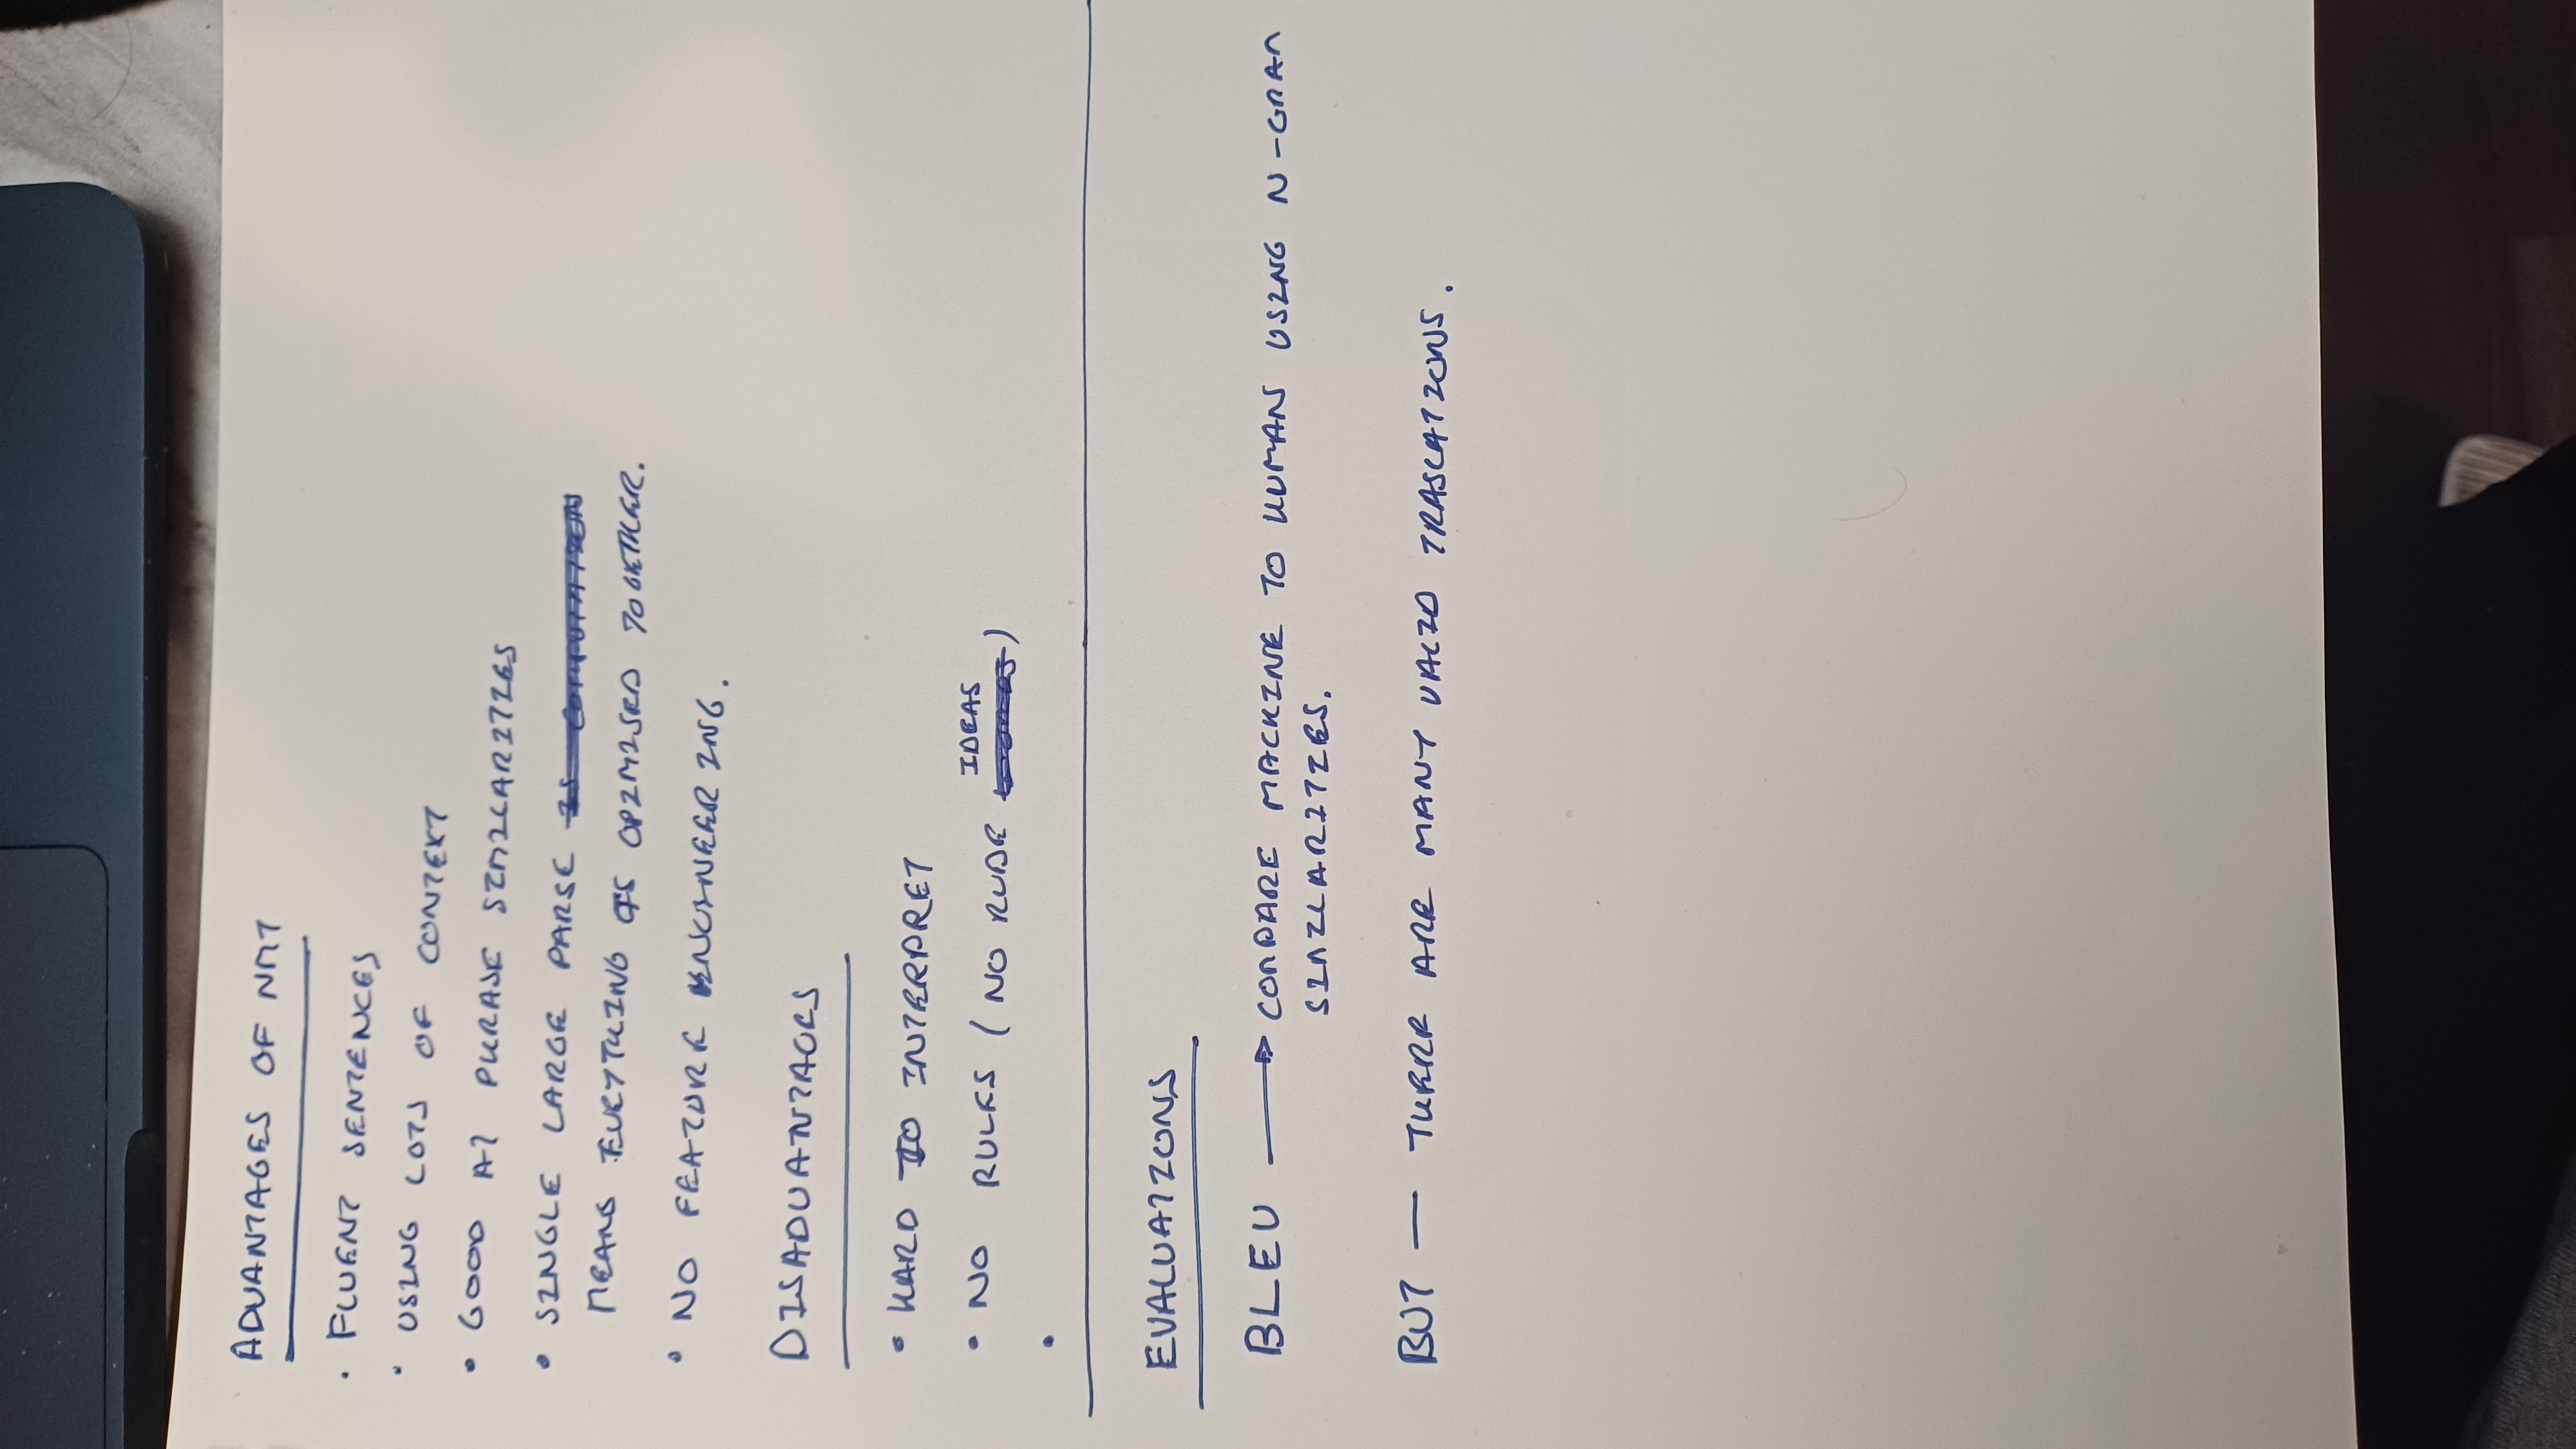 ADVANTAGES OF NMT
• FLUENT SENTENCES
• USING LOTS OF CONTEXT
• GOOD AT PHRASE SIMILARITIES
• SINGLE LARGE PARSE IS COMPUTATION
MEANS EVEYTHING IS OPIMISED TOGETHER.
• NO FEATURE ENGINEERING.
DISADVANTAGES
• HARD TO INTERPRET
• NO RULES (NO RUDE IDEAS)
•
EVALUATIONS
BLEU → COMPARE MACHINE TO HUMAN USING N-GRAM
SIMILARITIES.
BUT — THERE ARE MANY VALID TRASLATIONS.